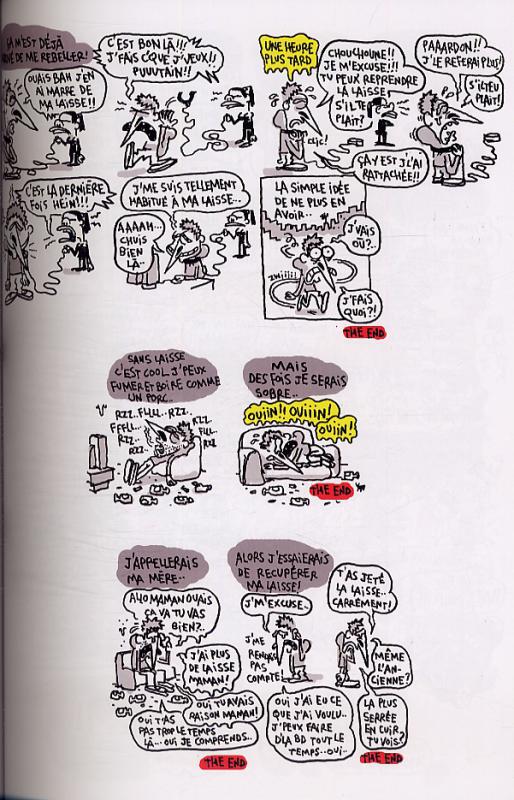 M'EST DÉJÀ
DE ME REBELLER!
OUAIS BAH J'EN
AI MARRE DE
MA LAISSE!!
C'EST BON LÀ!!!
J'FAIS C'QUE J'VEUX!!
PUUUTAIN!!
UNE HEURE
PLUS TARD
CHOUCHOUNE!!
JE M'EXCUSE!!!
TU PEUX REPRENDRE
LA LAISSE
S'ILTE
PLAIT?
CLIC!
PAAARDON!!
J'LE REFERAI PLUS!
S'ILTEU
PLAIT!
ÇA Y EST J'L'AI
RATTACHÉE!!
C'EST LA DERNIÈRE
FOIS HEIN!!!
J'ME SUIS TELLEMENT
HABITUÉ À MA LAISSE..
AAAAH...
CHUIS
BIEN
LÀ..
LA SIMPLE IDÉE
DE NE PLUS EN
AVOIR..
J'VAIS
OÙ?..
J'FAIS
QUOI?!
THE END
SANS LAISSE
C'EST COOL J'PEUX
FUMER ET BOIRE COMME
UN PORC..
RZZ..FLLL..RZZ..
FFFLL..
RZZ..
RZZ
RZZ..
FLLL..
RZZ
MAIS
DES FOIS JE SERAIS
SOBRE..
OUIIN!! OUIIIN!
OUIIN!
THE END
J'APPELLERAIS
MA MÈRE..
ALLO MAMAN OUAIS
ÇA VA TU VAS
BIEN?..
J'AI PLUS
DE LAISSE
MAMAN!
OUI TU AVAIS
RAISON MAMAN!
OUI T'AS
PAS TROP LE TEMPS
LÀ...OUI JE COMPRENDS..
THE END
ALORS J'ESSAIERAIS
DE RECUPÉRER
MA LAISSE!
J'M'EXCUSE..
J'ME
RENDAIS
PAS
COMPTE!
OUI J'AI EU CE
QUE J'AI VOULU..
J'PEUX FAIRE
D'LA BD TOUT LE
TEMPS..OUI..
T'AS JETÉ
LA LAISSE..
CARRÉMENT!
MÊME
L'AN-
CIENNE?
LA PLUS
SERRÉE
EN CUIR,
TU VOIS?
THE END